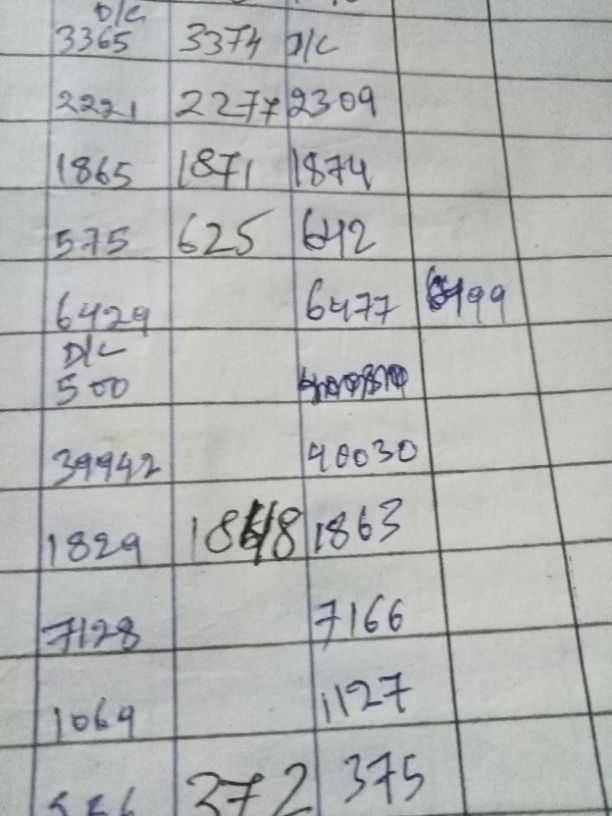 D/C
3365 3374 D/C
2221 2277 2309
1865 1871 1874
575 625 642
6429 6477 6499
D/C
500
39942 40030
1829 1848 1863
7128 7166
1069 1127
372 375